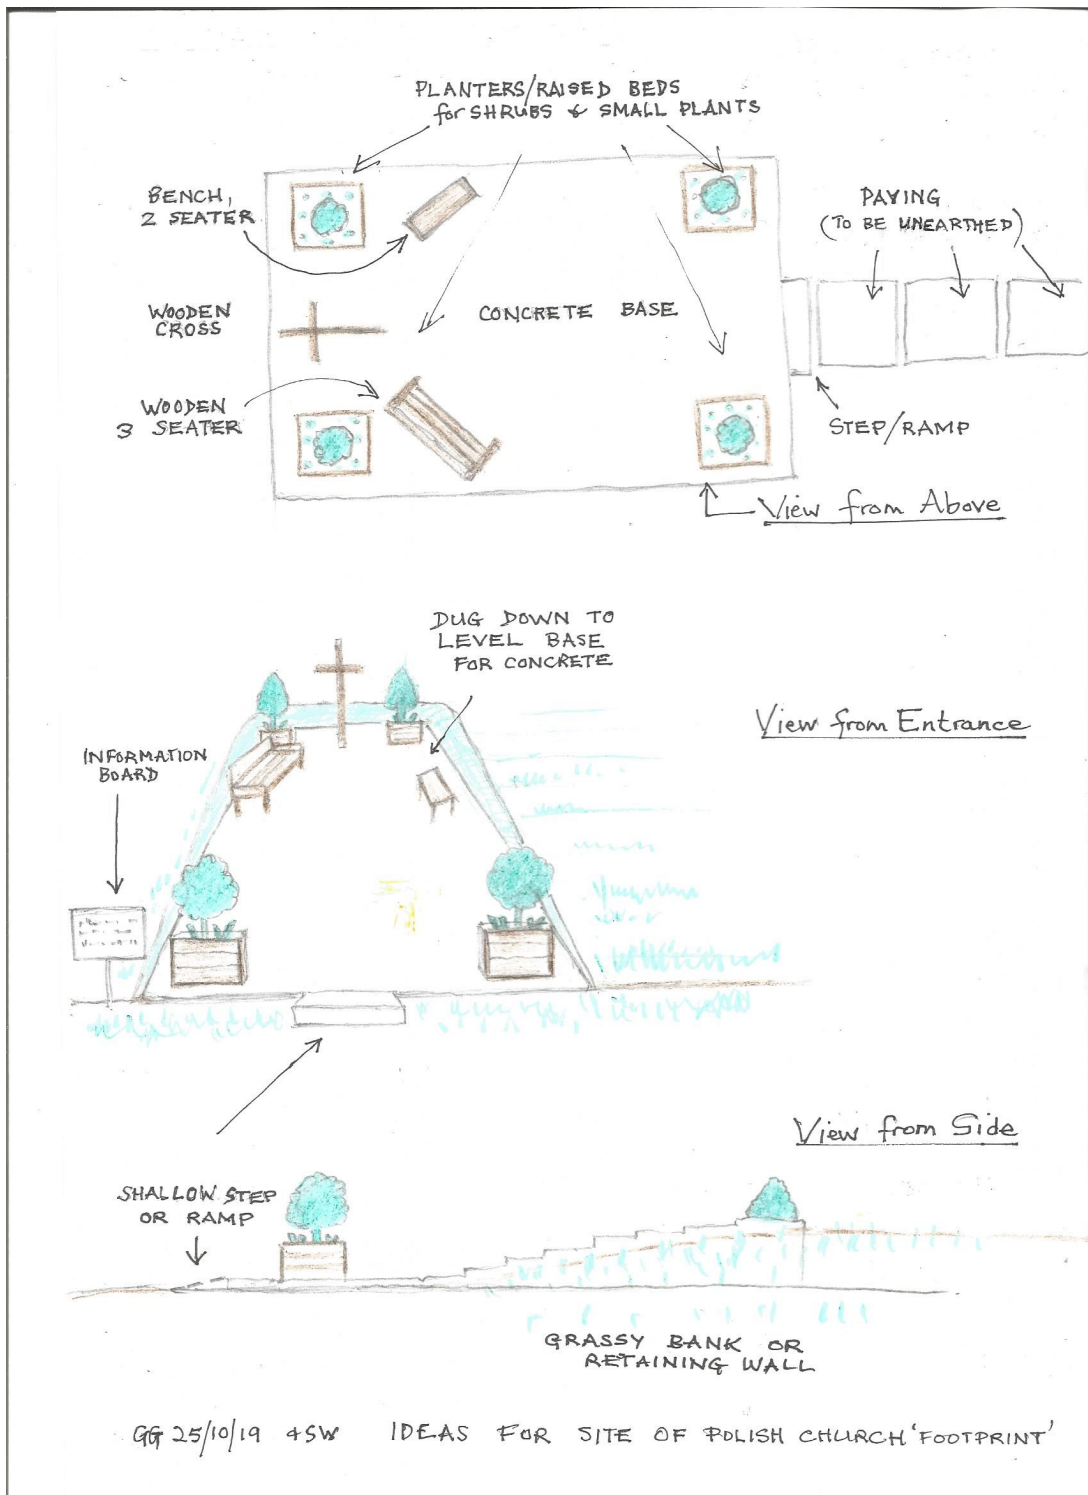 PLANTERS/RAISED BEDS
for SHRUBS & SMALL PLANTS
BENCH,
2 SEATER
PAVING
(TO BE UNEARTHED)
WOODEN
CROSS
CONCRETE BASE
WOODEN
3 SEATER
STEP/RAMP
View from Above
DUG DOWN TO
LEVEL BASE
FOR CONCRETE
View from Entrance
INFORMATION
BOARD
View from Side
SHALLOW STEP
OR RAMP
GRASSY BANK OR
RETAINING WALL
GG 25/10/19 & SW IDEAS FOR SITE OF POLISH CHURCH 'FOOTPRINT'